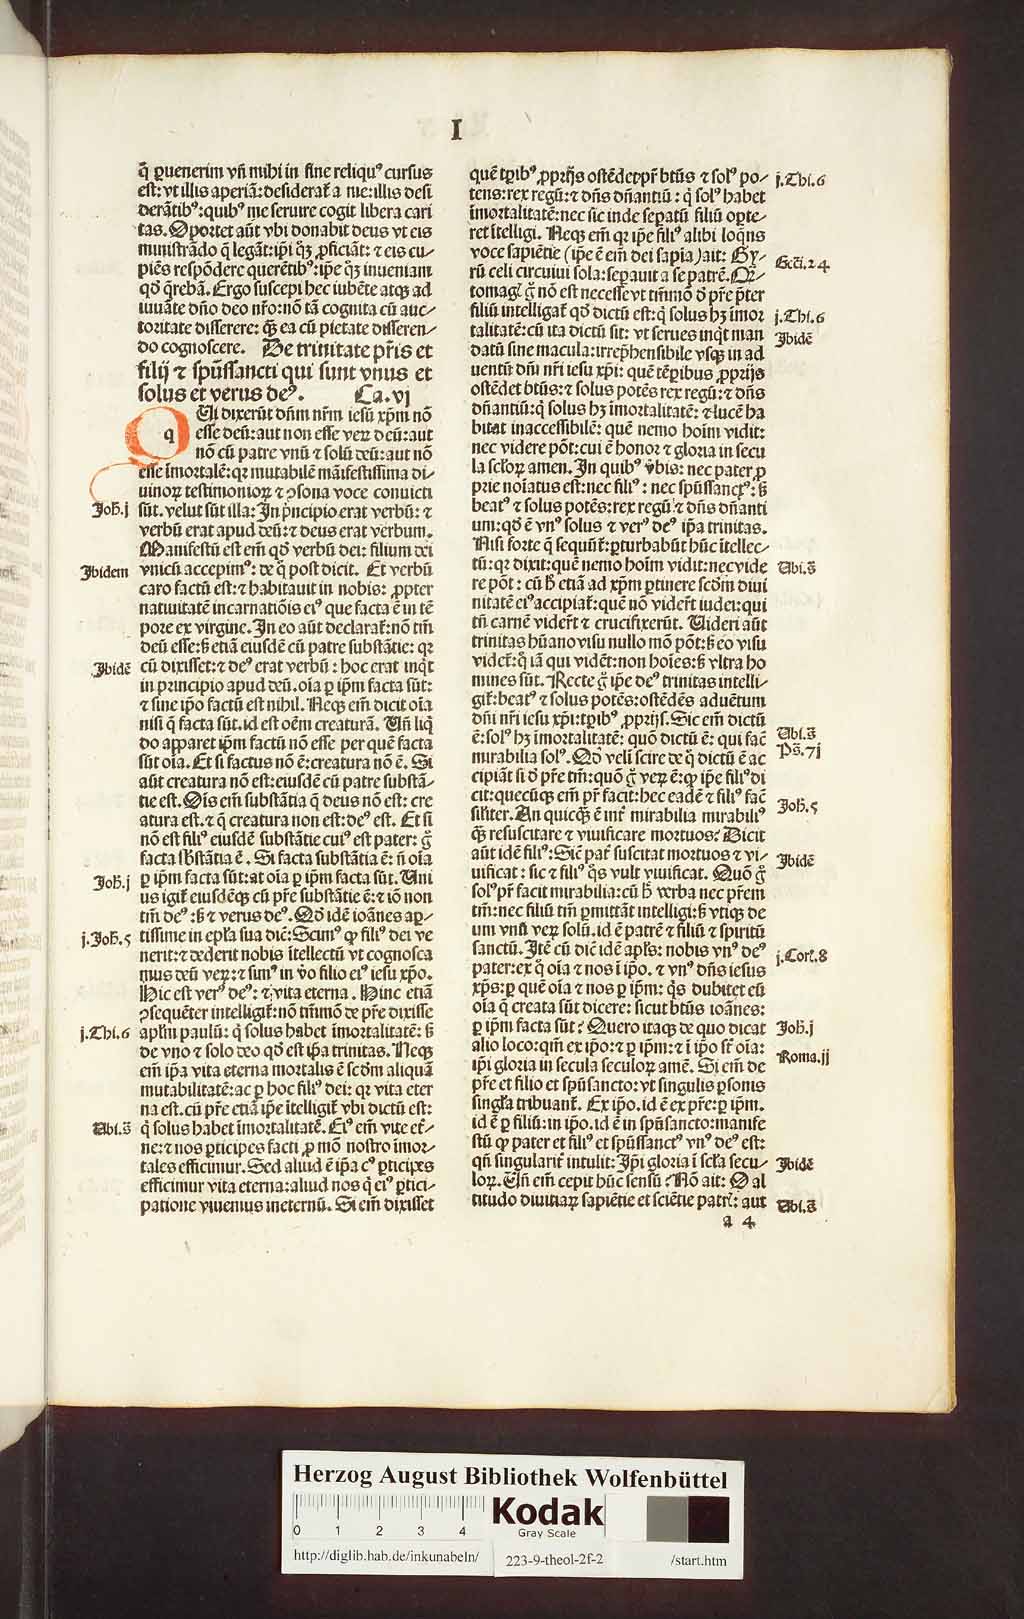 I
q̄ ꝑuenerim vn̄ mihi in fine reliquꝰ cursus
est: vt illis aperiā: desiderat̄ a me: illis desi
derātibꝰ: quibꝰ me seruire cogit libera cari
tas. Oportet aūt vbi donabit deus vt eis
ministrādo q̄ legāt: ip̄i qͦꝫ ꝓficiāt: ⁊ eis cu⸗
piēs respōdere querētibꝰ: ip̄e qͦꝫ inueniam
qd̄ q̄rebā. Ergo suscepi hec iubēte atqꝫ ad
iuuāte dn̄o deo nr̄o: nō tā cognita cū auc⸗
toritate disserere: qꝫ ea cū pietate disseren⸗
do cognoscere. De trinitate pr̄is et
filij ⁊ spūssancti qui sunt vnus et
solus et verus deꝰ. Ca. vj
Qui dixerūt dn̄m nr̄m iesū xp̄m nō
esse deū: aut non esse verꝝ deū: aut
nō cū patre vnū ⁊ solū deū: aut nō
esse īmortalē: qꝛ mutabilē māifestissima di⸗
uinoꝝ testimonioꝝ ⁊ ꝯsona voce conuicti
Joh̄. j
sūt. velut sūt illa: In pn̄cipio erat verbū: ⁊
verbū erat apud deū: ⁊ deus erat verbum.
Manifestū est em̄ qd̄ verbū dei: filium dei
Ibidem
vnicū accepimꝰ: de q̄ post dicit. Et verbū
caro factū est: ⁊ habitauit in nobis: ꝓpter
natiuitatē incarnatiōis eiꝰ que facta ē in tē
pore ex virgine. In eo aūt declarat̄: nō tm̄
deū esse: sꝫ etiā eiusdē cū patre substātie: qꝛ
Ibidē
cū dixisset: ⁊ deꝰ erat verbū: hoc erat inqͥt
in principio apud deū. oīa ꝑ ip̄m facta sūt:
⁊ sine ip̄o factū est nihil. Neqꝫ em̄ dicit oīa
nisi q̄ facta sūt. id est oēm creaturā. Vn̄ liq̄
do apparet ip̄m factū nō esse per quē facta
sūt oīa. Et si factus nō ē: creatura nō ē. Si
aūt creatura nō est: eiusdē cū patre substā⸗
tie est. Oīs em̄ substātia q̄ deus nō est: cre
atura est. ⁊ q̄ creatura non est: deꝰ est. Et si
nō est filiꝰ eiusdē substātie cuiꝰ est pater: g̊
facta sb̄stātia ē. Si facta substātia ē: n̄ oīa
Joh̄. j
ꝑ ip̄m facta sūt: at oīa ꝑ ip̄m facta sūt. Uni
us igit̄ eiusdēqꝫ cū pr̄e substātie ē: ⁊ iō non
tm̄ deꝰ: sꝫ ⁊ verus deꝰ. Qd̄ idē ioānes aꝑ⸗
j. Joh̄. 5
tissime in epl̄a sua dic̄: Scimꝰ ꝙ filiꝰ dei ve
nerit: ⁊ dederit nobis ītellectū vt cognosca
mus deū verꝝ: ⁊ simꝰ in vo̊ filio eiꝰ iesu xp̄o.
Hic est verꝰ deꝰ: ⁊ vita eterna. Hinc etiā
ꝯsequēter intelligit̄: nō tm̄mō de pr̄e dixisse
j. Thi. 6
apl̄m paulū: q̄ solus habet īmortalitatē: sꝫ
de vno ⁊ solo deo qd̄ est ip̄a trinitas. Neqꝫ
em̄ ip̄a vita eterna mortalis ē scd̄m aliquā
mutabilitatē: ac ꝑ hoc filiꝰ dei: qꝛ vita eter
na est. cū pr̄e etiā ip̄e ītelligit̄ vbi dictū est:
Ubi. s̄
q̄ solus habet īmortalitatē. Eiꝰ em̄ vite et̄⸗
ne: ⁊ nos ꝑticipes facti ꝓ mō nostro īmor⸗
tales efficimur. Sed aliud ē ip̄a cꝰ ꝑticipes
efficimur vita eterna: aliud nos q̄ eiꝰ ꝑtici⸗
patione viuemus ineternū. Si em̄ dixisset
quē tp̄ibꝰ ꝓprijs ostēdet pr̄ bt̄us ⁊ solꝰ po⸗
j. Thi. 6
tens: rex regū: ⁊ dn̄s dn̄antiū: q̄ solꝰ habet
īmortalitatē: nec sic inde seꝑatū filiū oꝑte⸗
ret ītelligi. Neqꝫ em̄ qꝛ ip̄e filiꝰ alibi loqn̄s
voce sapiētie (ip̄e ē em̄ dei sapīa) ait: Gy⸗
Ecc̄i. 24
rū celi circuiui sola: seꝑauit a se patrē. Qͣ⸗
tomagꝭ g̊ nō est necesse vt tm̄mō d̓ pr̄e p̄ter
filiū intelligat̄ qd̄ dictū est: q̄ solus hꝫ īmor
j. Thi. 6
talitatē: cū ita dictū sit: vt serues inqͥt man
Ibidē
datū sine macula: irrep̄hensibile vsqꝫ in ad
uentū dn̄i nr̄i iesu xp̄i: quē tēꝑibus ꝓprijs
ostēdet bt̄us: ⁊ solus potēs rex regū: ⁊ dn̄s
dn̄antiū: q̄ solus hꝫ īmortalitatē: ⁊ lucē ha
bitat inaccessibilē: quē nemo hoīm vidit:
nec videre pōt: cui ē honor ⁊ gloria in secu
la sclōꝝ amen. In quibꝰ v̓bis: nec pater ꝓ
prie noīatus est: nec filiꝰ: nec spūssanctꝰ: sꝫ
beatꝰ ⁊ solus potēs: rex regū: ⁊ dn̄s dn̄anti
um: qd̄ ē vnꝰ solus ⁊ verꝰ deꝰ ip̄a trinitas.
Nisi forte q̄ sequūt̄: ꝑturbabūt hūc ītellec⸗
tū: qꝛ dixit: quē nemo hoīm vidit: nec vide
Ubi. s̄
re pōt: cū hͦ etiā ad xp̄m ꝑtinere scd̄m diui
nitatē eiꝰ accipiat̄: quē nō vider̄t iudei: qui
tn̄ carnē vider̄t ⁊ crucifixerūt. Videri aūt
trinitas hūano visu nullo mō pōt: sꝫ eo visu
videt̄: q̊ iā qui vidēt: non hoīes: sꝫ vltra ho
mines sūt. Recte g̊ ip̄e deꝰ trinitas intelli⸗
git̄: beatꝰ ⁊ solus potēs: ostēdēs aduētum
dn̄i nr̄i iesu xp̄i: tp̄ibꝰ ꝓprijs. Sic em̄ dictū
ē: solꝰ hꝫ īmortalitatē: quō dictū ē: qui fac̄
Ubi. s̄
mirabilia solꝰ. Qd̄ veli scire de q̊ dictū ē ac
Ps̄. 71
cipiāt si d̓ pr̄e tm̄: quō g̊ verꝝ ē: ꝙ ip̄e filiꝰ di
cit: quecūqꝫ em̄ pr̄ facit: hec eadē ⁊ filiꝰ fac̄
Joh̄. 5
sil̄iter. An quicqͣꝫ ē int̄ mirabilia mirabiliꝰ
qͣꝫ resuscitare ⁊ viuificare mortuos? Dicit
aūt idē filiꝰ: Sic̄ pat̄ suscitat mortuos ⁊ vi⸗
Ibidē
uificat: sic ⁊ filiꝰ q̊s vult viuificat. Quō g̊
solꝰ pr̄ facit mirabilia: cū hͦ verba nec pr̄em
tm̄: nec filiū tm̄ ꝑmittāt intelligi: sꝫ vtiqꝫ de
um vnū verꝝ solū. id ē patrē ⁊ filiū ⁊ spiritū
sanctū. Itē cū dic̄ idē apl̄s: nobis vnꝰ deꝰ
j. Cor̄. 8
pater: ex q̊ oīa ⁊ nos ī ip̄o. ⁊ vnꝰ dn̄s iesus
xp̄s: ꝑ quē oīa ⁊ nos ꝑ ip̄m: qͥs dubitet eū
oīa q̄ creata sūt dicere: sicut bt̄us ioānes:
ꝑ ip̄m facta sūt? Quero itaqꝫ de quo dicat
Joh̄. j
alio loco: qm̄ ex ip̄o: ⁊ ꝑ ip̄m: ⁊ ī ip̄o st̄ oīa:
Roma. jj
ip̄i gloria in secula seculoꝝ amē. Si em̄ de
pr̄e et filio et spū sancto: vt singulis ꝑsonis
singl̄a tribuant̄. Ex ip̄o. id ē ex pr̄e: ꝑ ip̄m.
id ē ꝑ filiū: in ip̄o. id ē in spū sancto: manife
stū ꝙ pater et filiꝰ et spūssanctꝰ vnꝰ deꝰ est:
qn̄ singularit̄ intulit: Ip̄i gloria ī scl̄a secu⸗
Ibidē
loꝝ. Vn̄ em̄ cepit hūc sensū? Nō ait: O al
titudo diuitiaꝝ sapiētie et sciētie patrꝭ: aut
Ubi. s̄
a 4
Herzog August Bibliothek Wolfenbüttel
0 1 2 3 4
Kodak
Gray Scale
http://diglib.hab.de/inkunabeln/ 223-9-theol-2f-2 /start.htm